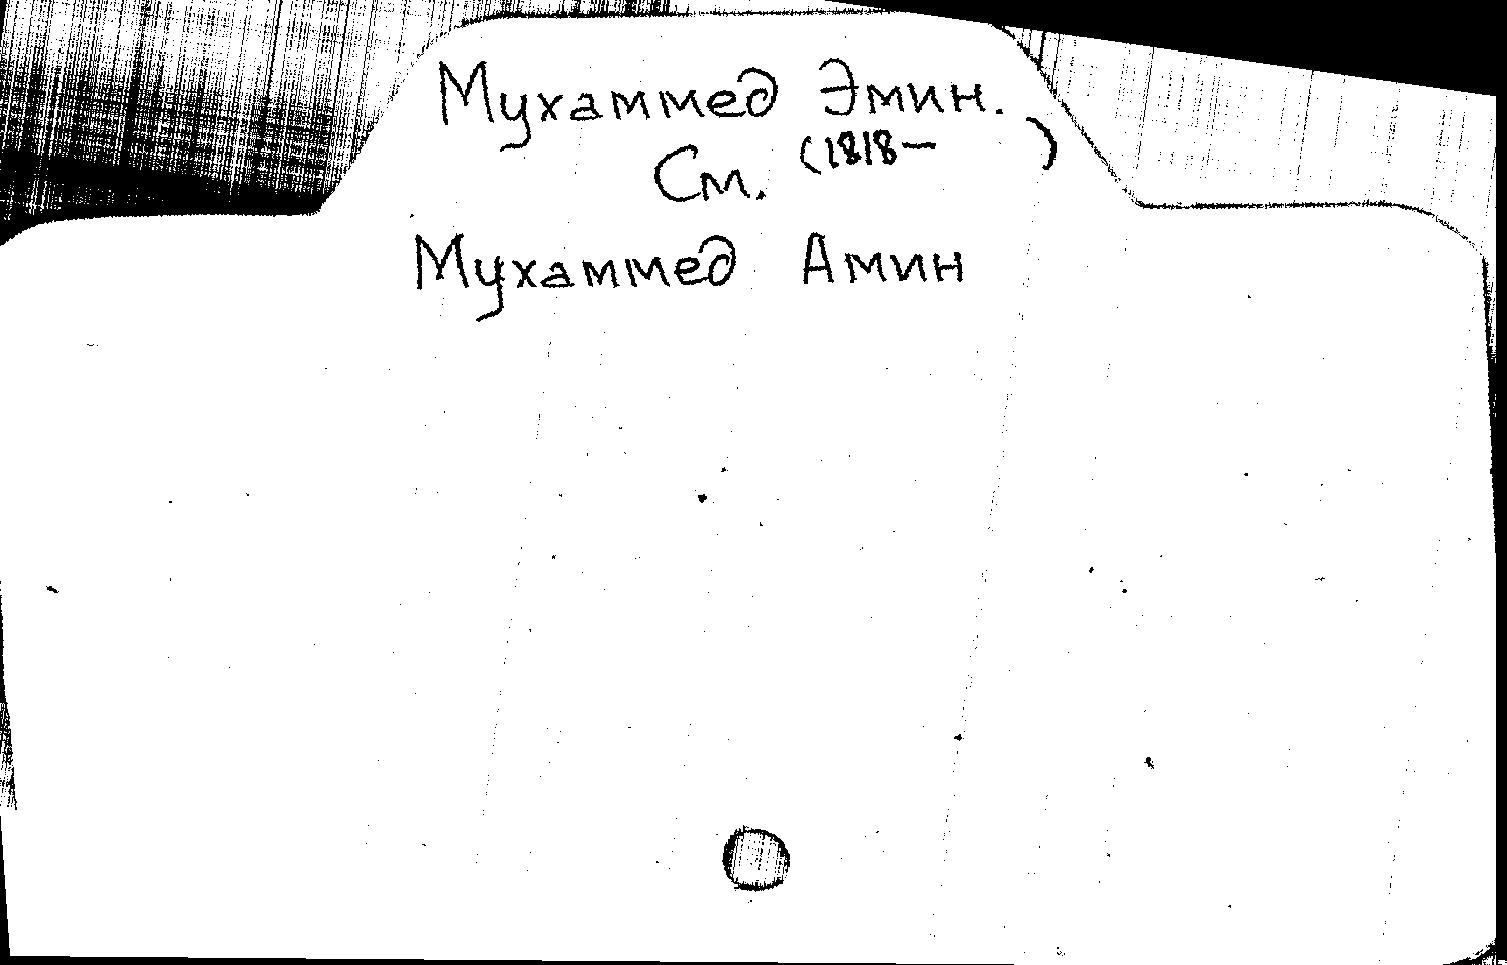 Мухаммед Эмин.
(1818—      )
См.
Мухаммед Амин